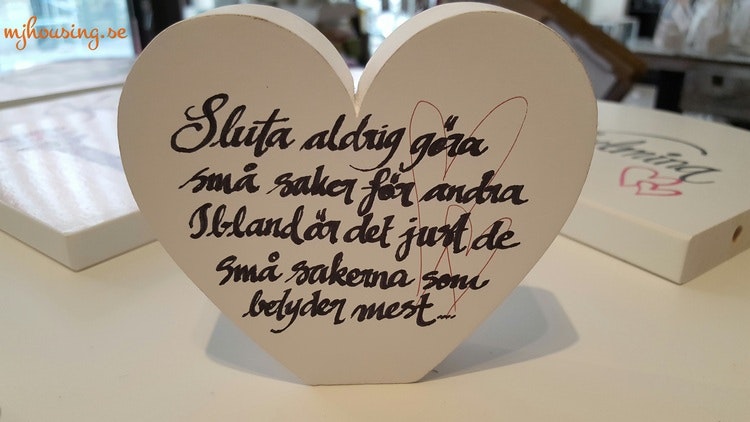 mjhousing.se
Sluta aldrig göra
små saker för andra
Ibland är det just de
små sakerna som
betyder mest....